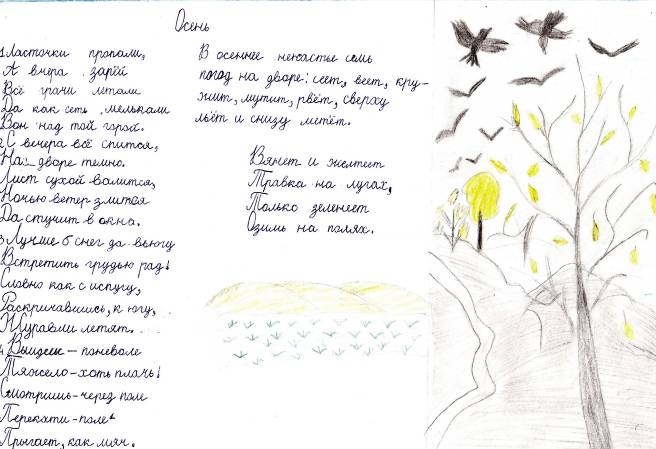 Осень
1 Ласточки пропали,
А вчера зарёй
Всё грачи летали
Да как сеть мелькали
Вон над той горой.
2 С вечера всё спится,
На дворе темно.
Лист сухой валится,
Ночью ветер злится
Да стучит в окно.
3 Лучше б снег да вьюгу
Встретить грудью рад!
Словно как с испугу,
Раскричавшись, к югу,
Журавли летят.
4 Выйдешь — поневоле
Тяжело-хоть плачь!
Смотришь-через поле
Перекати-поле
Прыгает, как мяч.
В осеннее ненастье семь
погод на дворе: сеет, веет, кру-
жит, мутит, рвёт, сверху
льёт и снизу метёт.
Вянет и желтеет
Травка на лугах,
Только зеленеет
Озимь на полях.